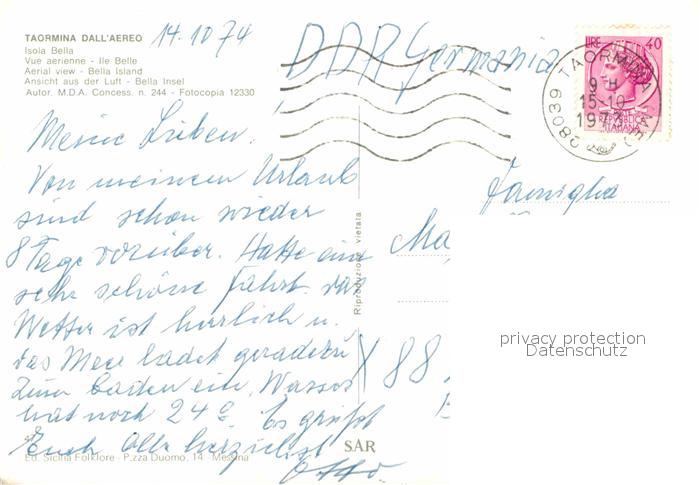 TAORMINA DALL'AEREO
Isola Bella
Vue aerienne - Ile Belle
Aerial view - Bella Island
Ansicht aus der Luft - Bella Insel
Autor. M.D.A. Concess. n. 244 - Fotocopia 12330
14.10 74
Meine Lieben.
Von meinem Urlaub
sind schon wieder
8 Tage vorüber. Hatte eine
sehr schöne Fahrt. das
Wetter ist herrlich u.
das Meer ladet geradezu
zum baden ein, Wasser
hat noch 24°. Es grüßt
Euch alle herzlichst
Otto.
Ed. Sicilia Folklore - P.zza Duomo, 14 Messina
SAR
Riproduzione vietata
DDR Germania
LIRE 40
REPUBBLICA
ITALIANA
98039 TAORMINA (ME)
9 H
15-10
Famiglia
Ma
X 88
privacy protection
Datenschutz